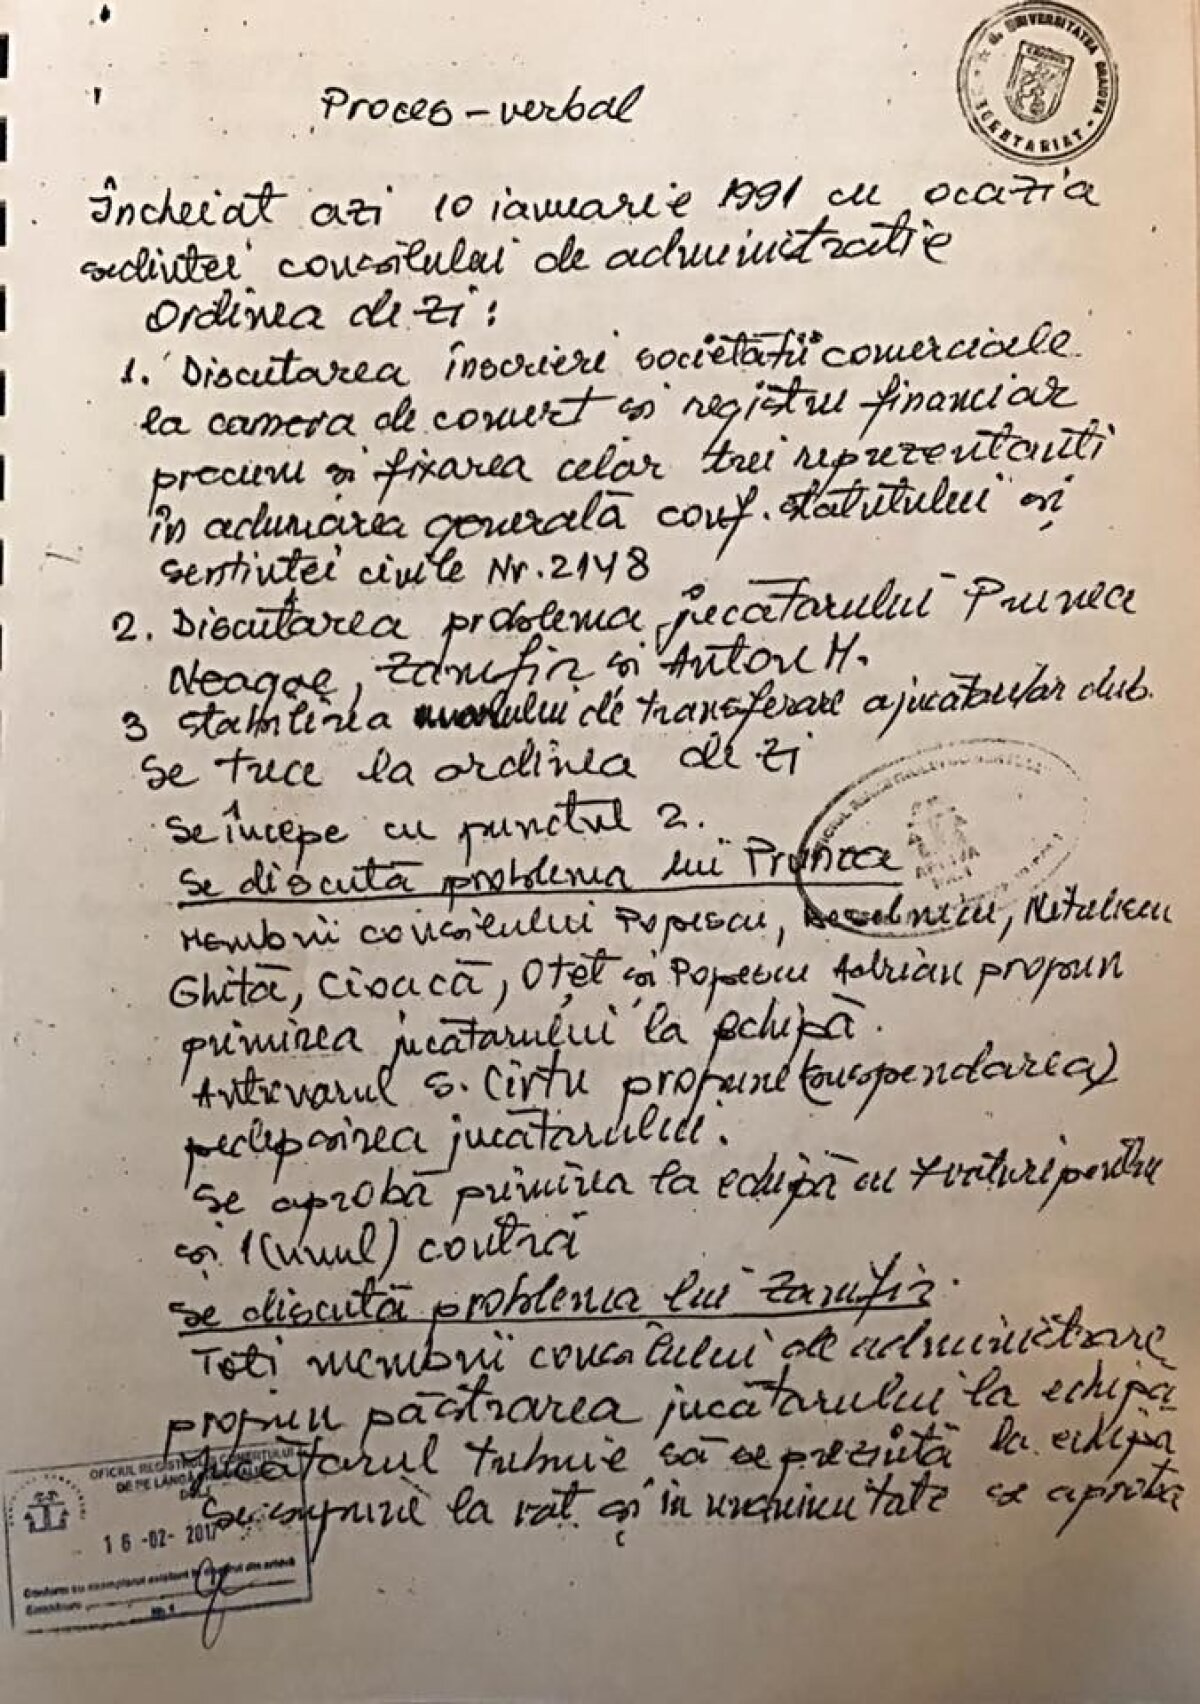 Proces-verbal
UNIVERSITATEA CRAIOVA
SECRETARIAT
Încheiat azi 10 ianuarie 1991 cu ocazia
sedintei consiliului de administratie
Ordinea de zi:
1. Discutarea înscrieri societătii comerciale
la camera de comert si registru financiar
precum si fixarea celor trei reprezentanti
în adunarea generală conf. statutului si
sentintei civile Nr. 2148
2. Discutarea problema jucătorului Prunea
Neagoe, Zamfir si Anton M.
3 Stabilirea de transferare a jucătorilor club.
Se trece la ordinea de zi
Se începe cu punctul 2.
Se discută problema lui Prunea
Membrii consiliului Popescu, Nitulescu
Ghită, Cioacă, Oțet si Popescu Adrian propun
primirea jucătorului la echipă.
Antrenorul S. Cîrtu propune (suspendarea)
pedepsirea jucătorului.
Se aprobă primirea la echipă cu voturi pentru
si 1 (unul) contră
Se discută problema lui Zamfir.
Toti membrii consiliului de administrare
propun păstrarea jucătorului la echipă
jucătorul trebuie să se prezintă la echipă
Se supune la vot și în unanimitate se aprobă
OFICIUL REGISTRULUI COMERTULUI
DE PE LÂNGĂ
16 -02- 2017